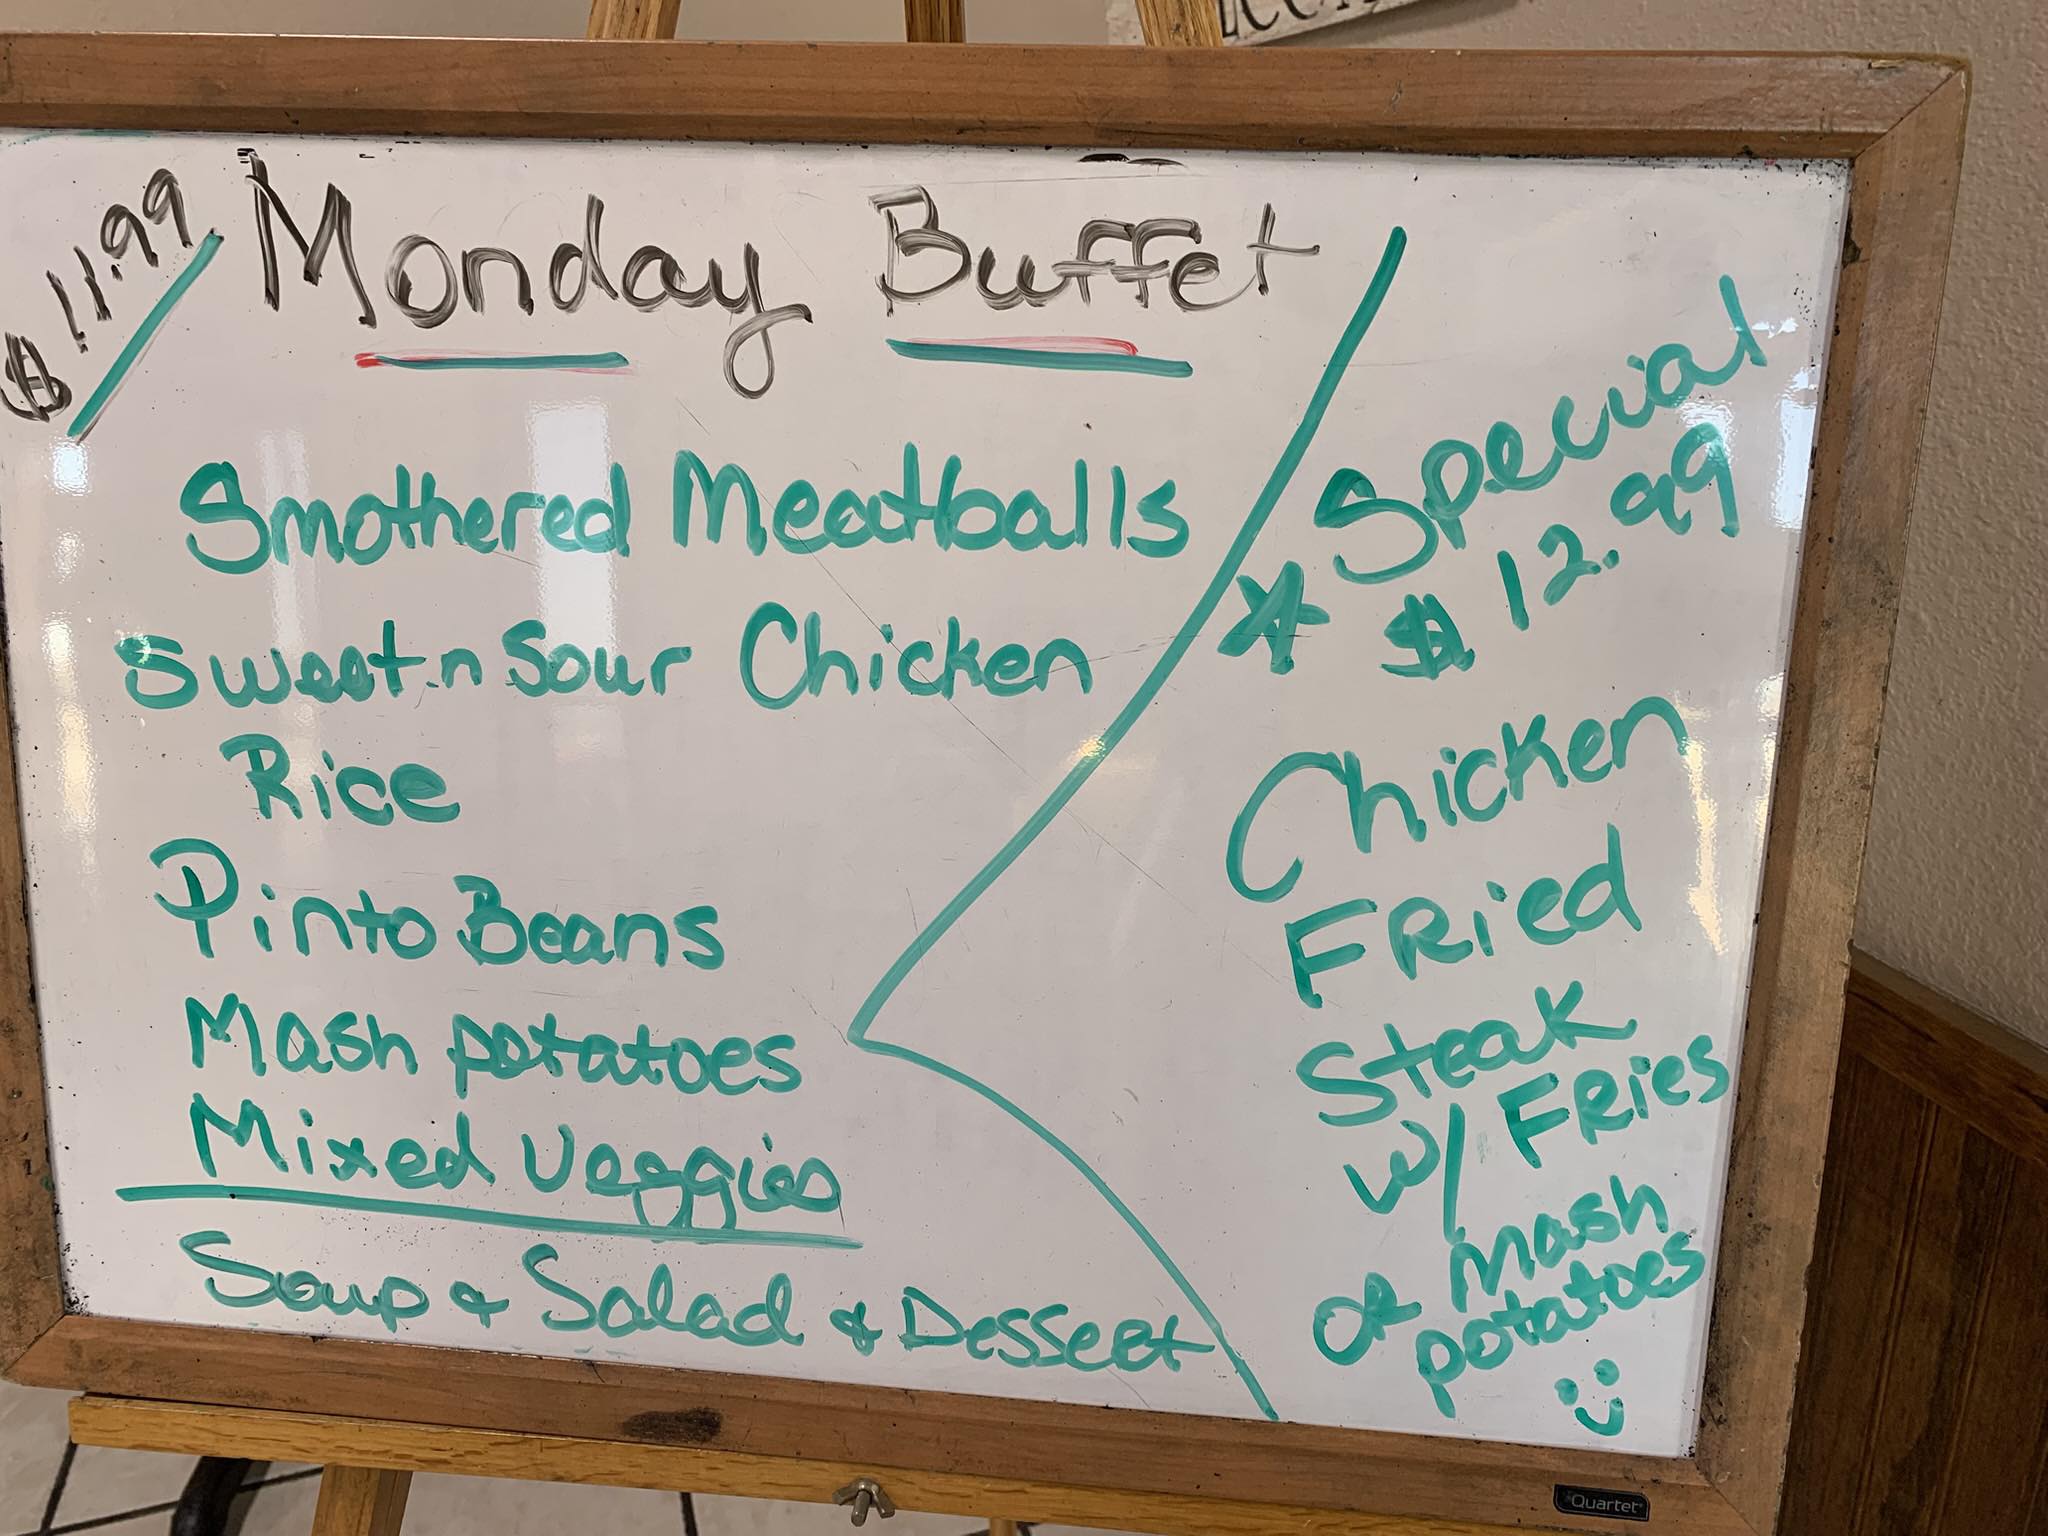 $11.99
Monday Buffet
Smothered Meatballs
Sweet.n Sour Chicken
Rice
Pinto Beans
Mash potatoes
Mixed veggies
Soup & Salad & Dessert
Special
* $12.99
Chicken
Fried
Steak
w/ Fries
or Mash
potatoes
Quartet